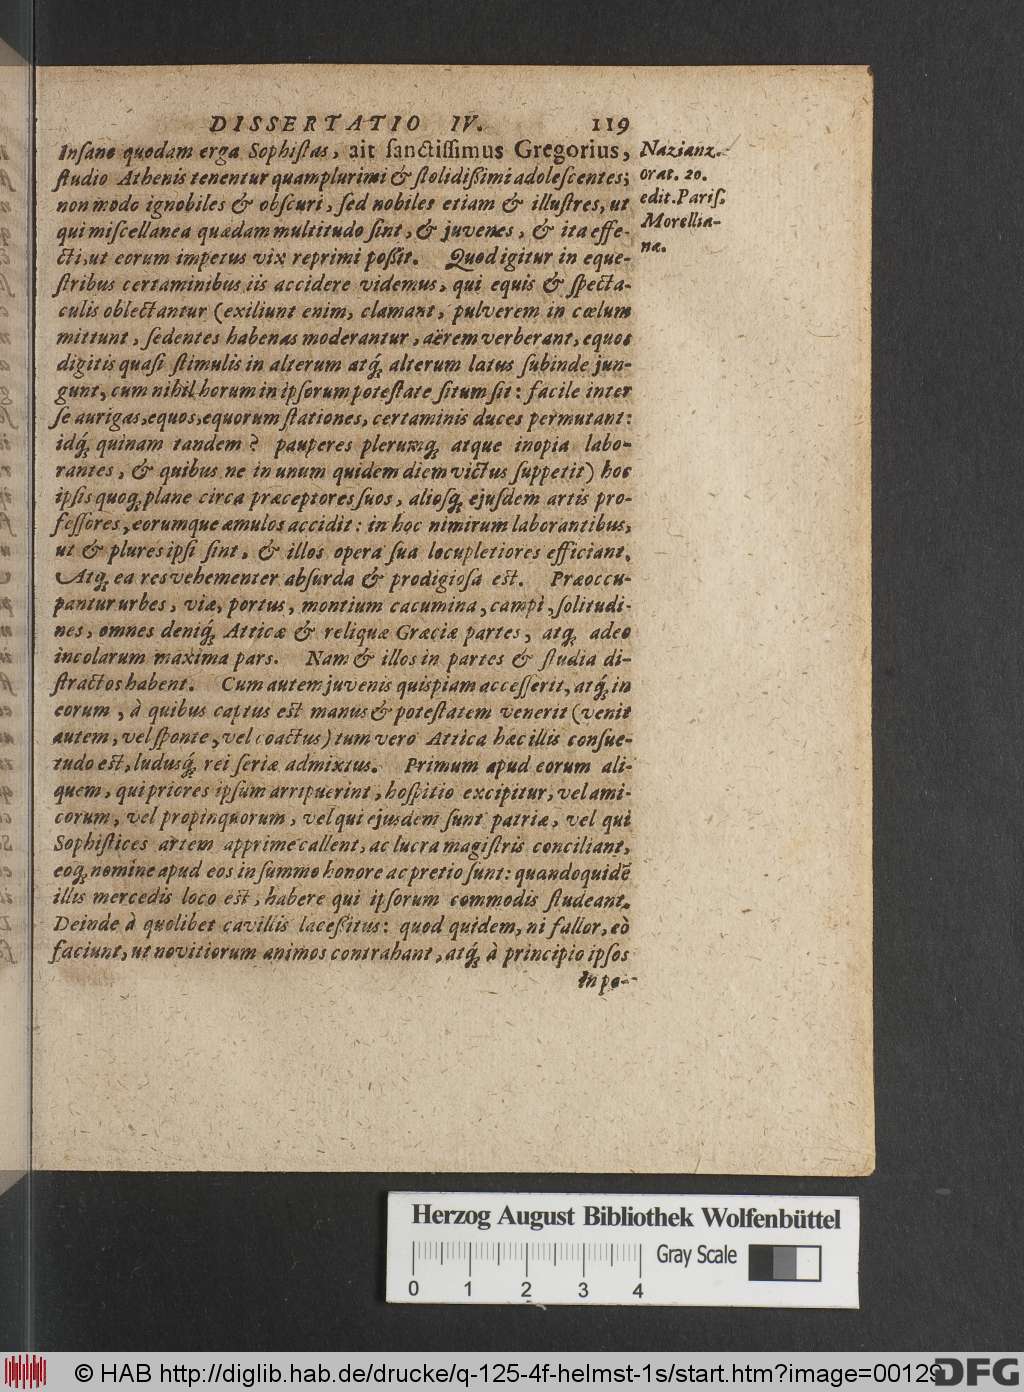 DISSERTATIO IV. 119
Insano quodam erga Sophiſtas, ait ſanctiſſimus Gregorius,
ſtudio Athenis tenentur quamplurimi & ſtolidiſſimi adoleſcentes;
non modo ignobiles & obſcuri, ſed nobiles etiam & illuſtres, ut
qui miſcellanea quædam multitudo ſint, & juvenes, & ita effe-
cti, ut eorum impetus vix reprimi poſſit. Quod igitur in eque-
ſtribus certaminibus iis accidere videmus, qui equis & ſpecta-
culis oblectantur (exiliunt enim, clamant, pulverem in cœlum
mittunt, ſedentes habenas moderantur, aërem verberant, equos
digitis quaſi ſtimulis in alterum atq́; alterum latus ſubinde jun-
gunt, cum nihil horum in ipſorum poteſtate ſitum ſit: facile inter
ſe aurigas, equos, equorum ſtationes, certaminis duces permutant:
idq́; quinam tandem? pauperes plerumq; atque inopia labo-
rantes, & quibus ne in unum quidem diem victus ſuppetit) hoc
ipſis quoq; plane circa præceptores ſuos, alioſq; ejuſdem artis pro-
feſſores, eorumque æmulos accidit: in hoc nimirum laborantibus,
ut & plures ipſi ſint, & illos opera ſua locupletiores efficiant.
Atq; ea res vehementer abſurda & prodigioſa est. Præoccu-
pantur urbes, viæ, portus, montium cacumina, campi, ſolitudi-
nes, omnes deniq́; Atticæ & reliquæ Græciæ partes, atq; adeo
incolarum maxima pars. Nam & illos in partes & ſtudia di-
ſtractos habent. Cum autem juvenis quispiam acceſſerit, atq́; in
eorum, à quibus captus est manus & poteſtatem venerit (venit
autem, vel ſponte, vel coactus) tum vero Attica hæc illis conſue-
tudo est, ludusq́; rei ſeriæ admixtus. Primum apud eorum ali-
quem, qui priores ipſum arripuerint, hoſpitio excipitur, vel ami-
corum, vel propinquorum, vel qui ejusdem ſunt patriæ, vel qui
Sophiſtices artem apprime callent, ac lucra magiſtris conciliant,
eoq; nomine apud eos in ſummo honore ac pretio ſunt: quandoquidē
illis mercedis loco est, habere qui ipſorum commodis ſtudeant.
Deinde à quolibet cavillis laceſſitus: quod quidem, ni fallor, eò
faciunt, ut novitiorum animos contrahant, atq́; à principio ipſos
in po-
Nazianz.
orat. 20.
edit. Pariſ.
Morellia-
næ.
Herzog August Bibliothek Wolfenbüttel
Gray Scale
0 1 2 3 4
© HAB http://diglib.hab.de/drucke/q-125-4f-helmst-1s/start.htm?image=00129
DFG